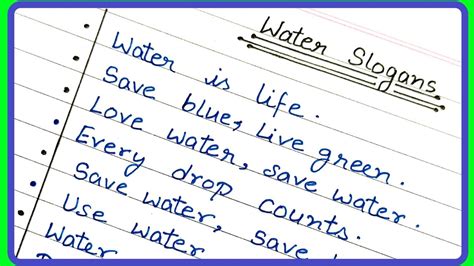 Water Slogans
Water is life.
Save blue, live green.
Love water, save water.
Every drop counts.
Save water, save
Use water
Water